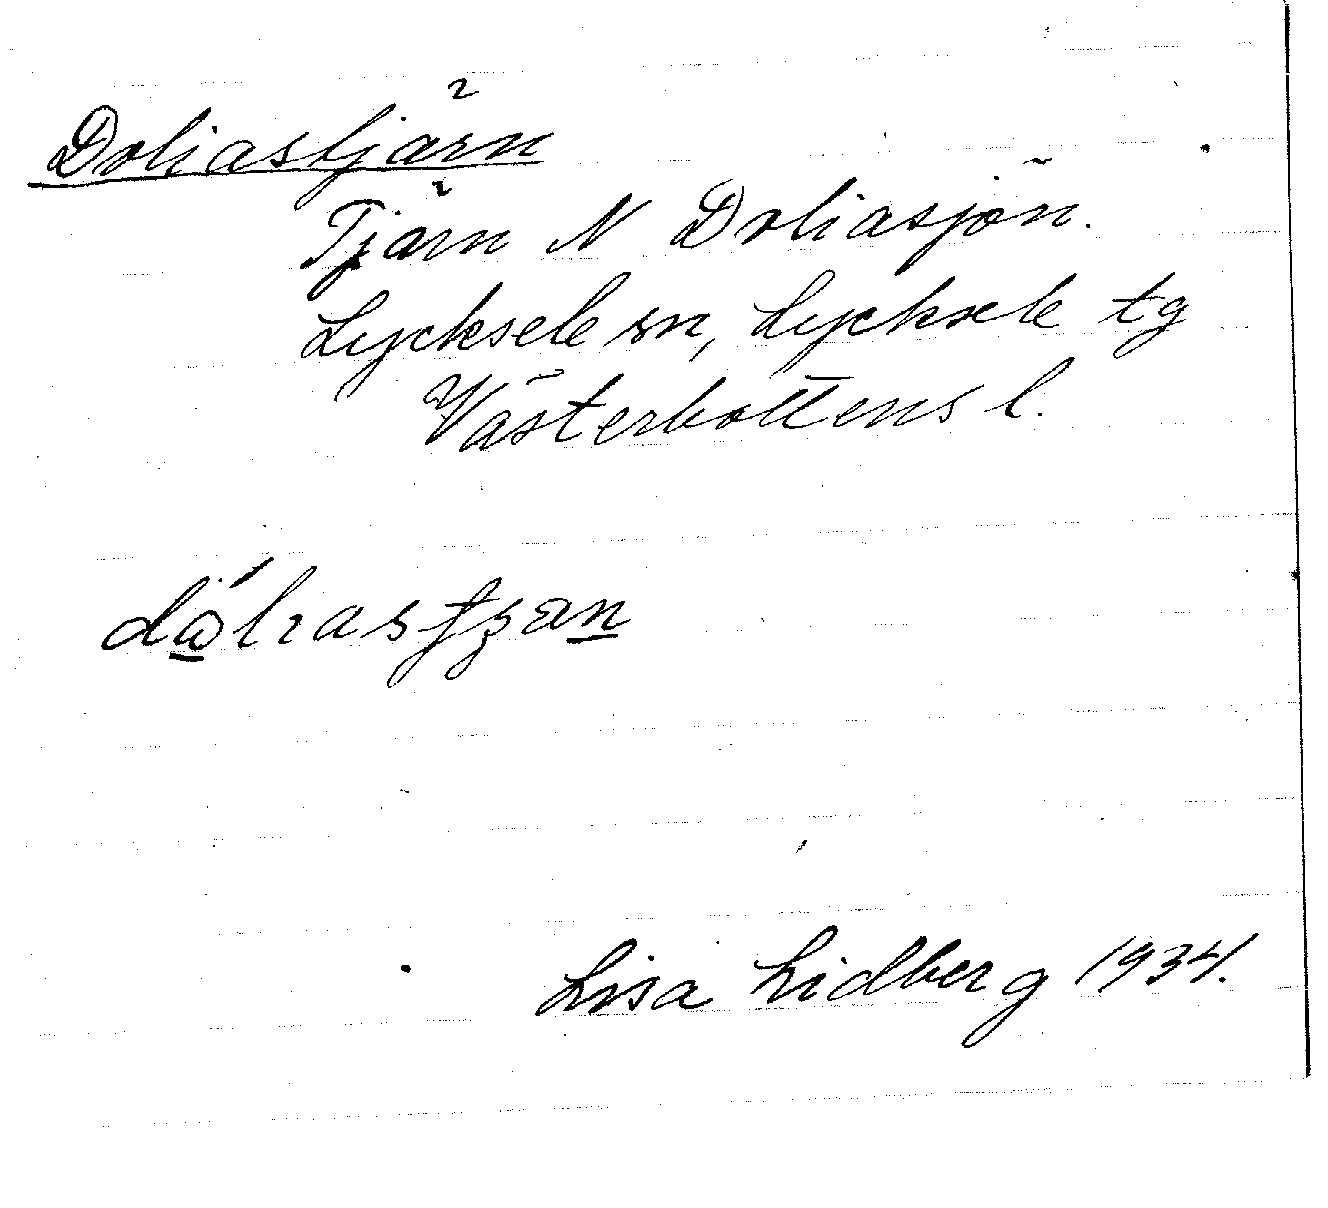 Doliastjärn
Tjärn N Doliasjön.
Lycksele sn, Lycksele tg
Västerbottens l.
Lisa Lidberg 1934.